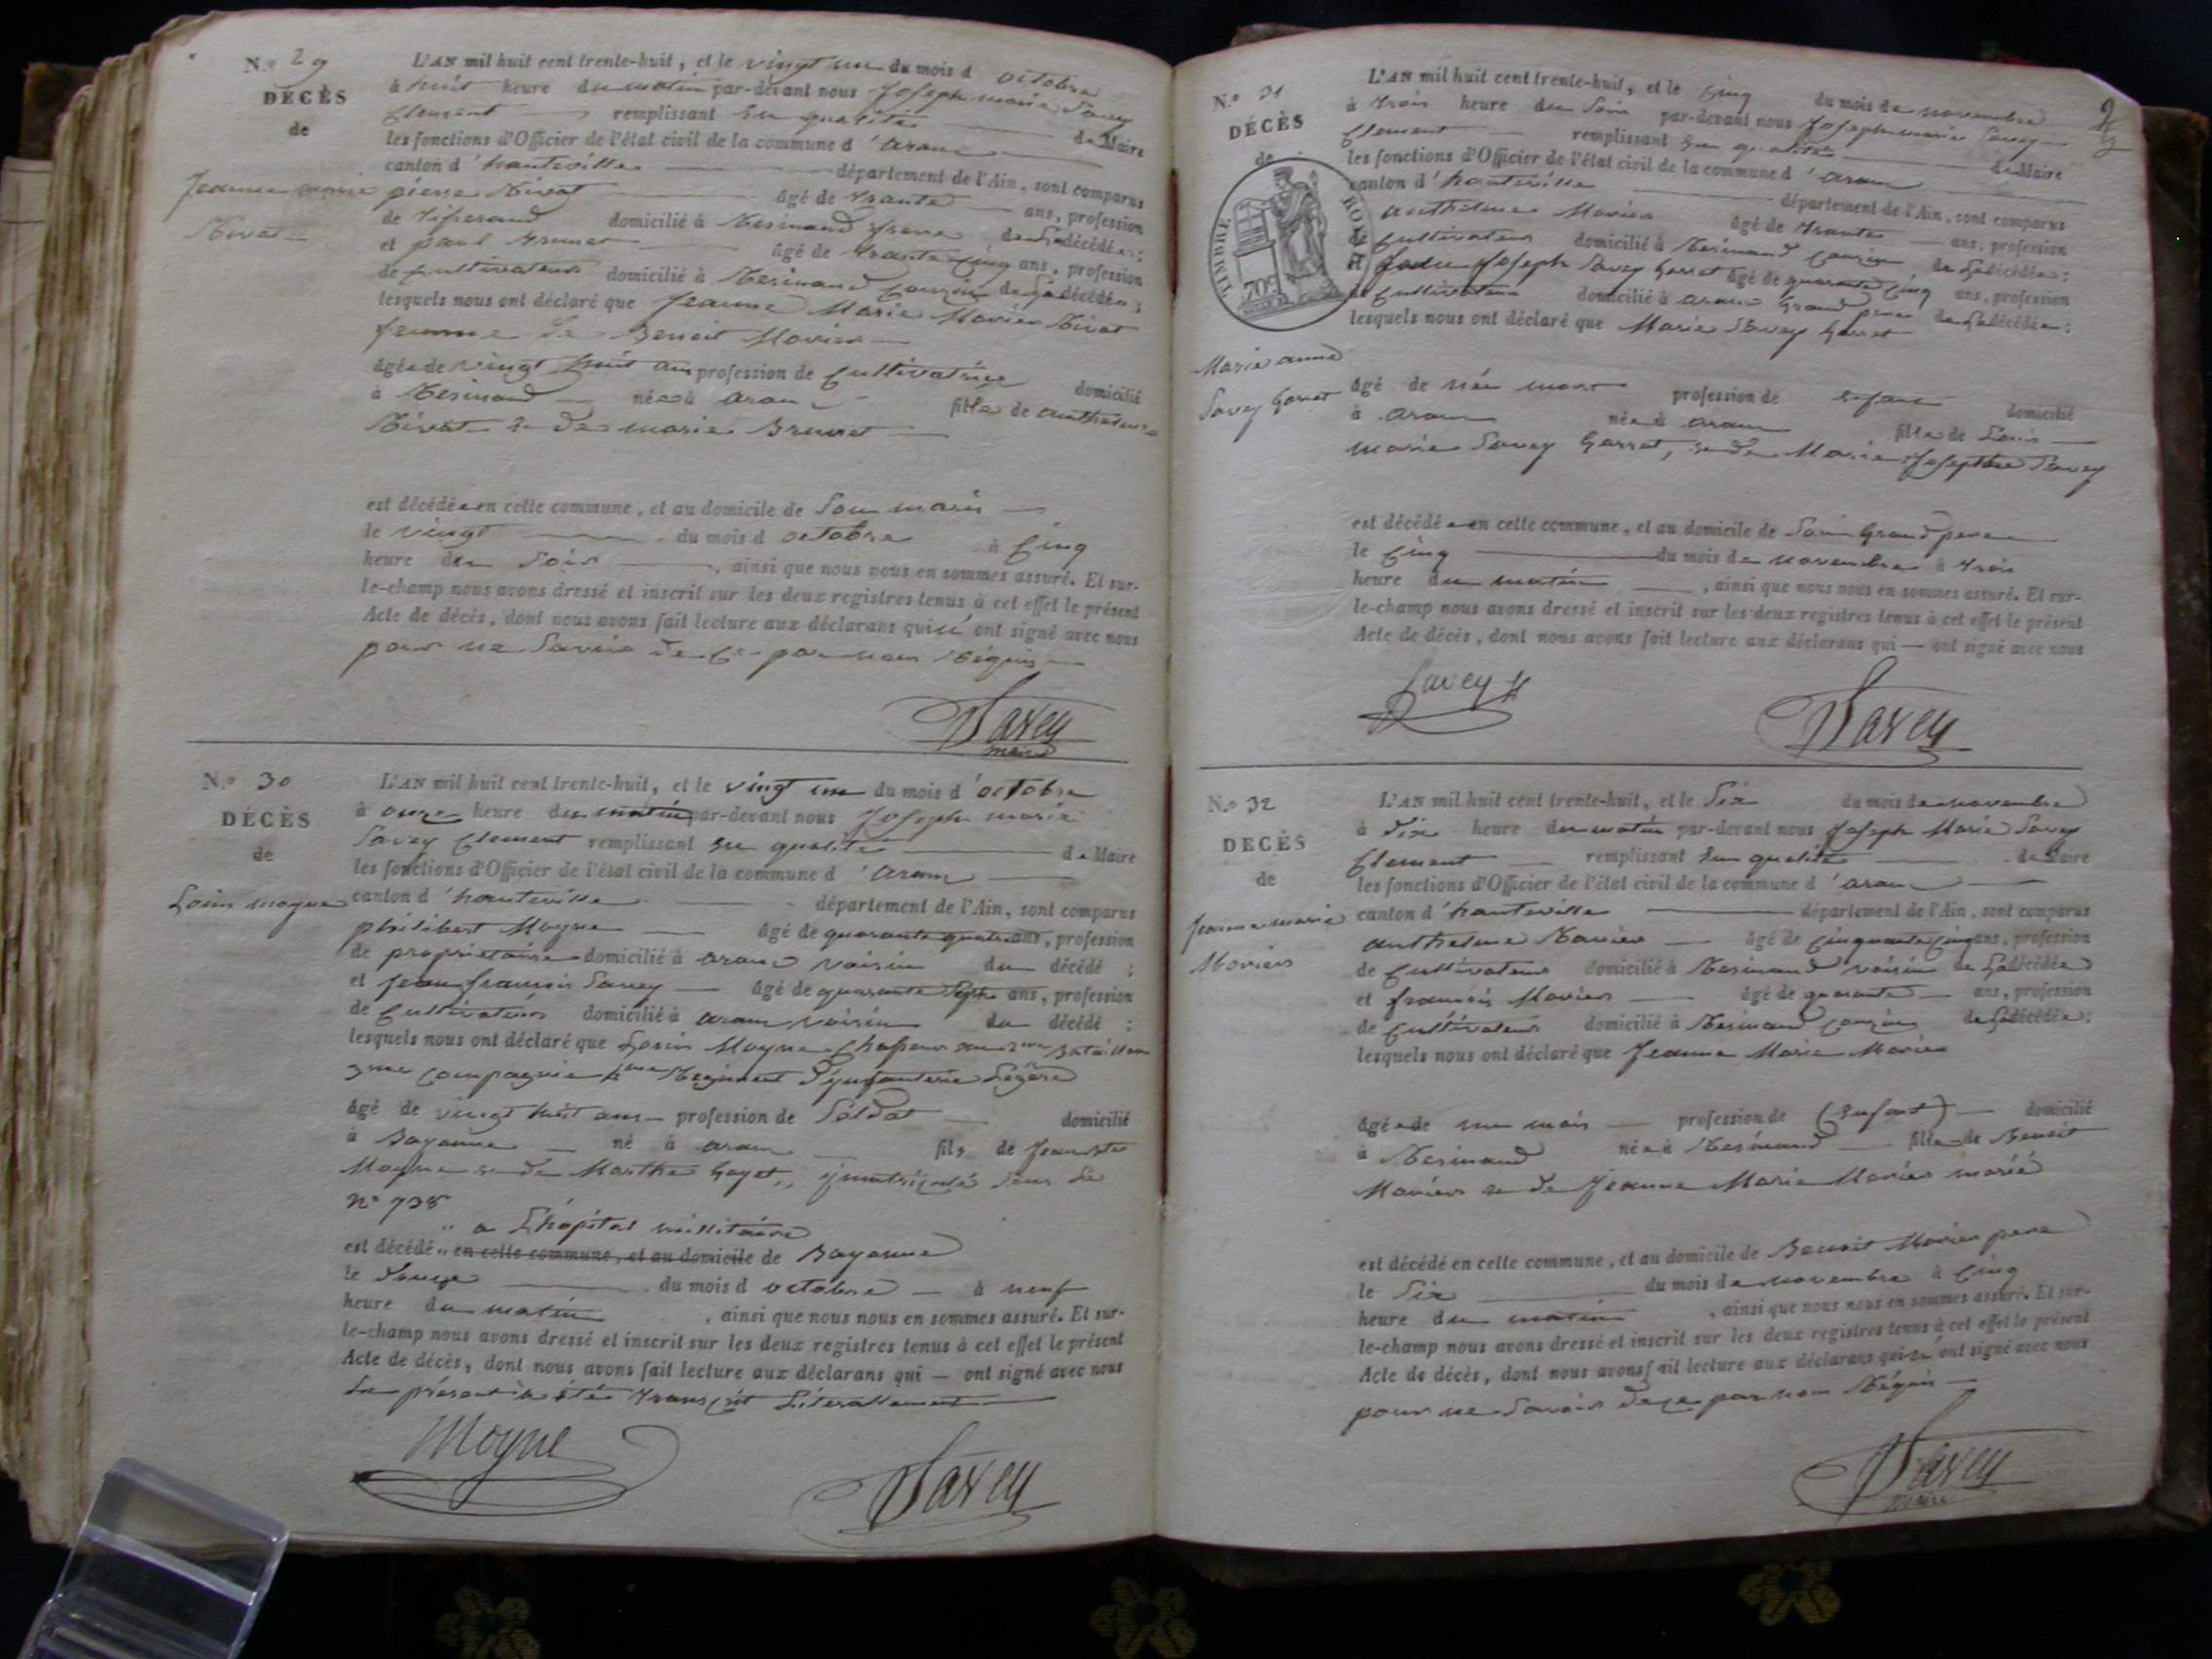 N.º 29
DÉCÈS
de
Jeanne marie
Nivat
L'AN mil huit cent trente-huit, et le vingt un du mois d octobre
à huit heure du matin par-devant nous Joseph marie Savey
Clement remplissant En qualité de Maire
les fonctions d'Officier de l'état civil de la commune d'aranc
canton d'hauteville département de l'Ain, sont comparus
pierre Nivat âgé de trante ans, profession
de Tisserand domicilié à Resinand frere de La décédée;
et paul Brunet âgé de trante Cinq ans, profession
de Cultivateur domicilié à Resinand Cousin de La décédée;
lesquels nous ont déclaré que Jeanne Marie Nivat
femme de Benoit Mories
âgée de vingt huit ans profession de Cultivatrice domicilié
à Resinand née à aranc fille de anthelme
Nivat & de marie Brunet
est décédée en cette commune, et au domicile de Son maris
le vingt du mois d octobre à Cinq
heure du Soir, ainsi que nous nous en sommes assuré. Et sur-
le-champ nous avons dressé et inscrit sur les deux registres tenus à cet effet le présent
Acte de décès, dont nous avons fait lecture aux déclarans qui n' ont signé avec nous
pour ne Savoir de Ce par nous Réquis
Savey
maire
N.º 30
DÉCÈS
de
Louis moyne
L'AN mil huit cent trente-huit, et le vingt un du mois d'octobre
à onze heure du matin par-devant nous Joseph marie
Savey Clement remplissant En qualité de Maire
les fonctions d'Officier de l'état civil de la commune d'aranc
canton d'hauteville département de l'Ain, sont comparus
philibert Moyne âgé de quarante quatre ans, profession
de propriétaire domicilié à aranc voisin du décédé;
et Jean françois Savey âgé de quarante Sept ans, profession
de Cultivateur domicilié à aranc voisin du décédé;
lesquels nous ont déclaré que Louis Moyne Chasseur au 2me Bataillon
3me Compagnie Regiment d'ynfanterie Legère
âgé de vingt huit ans profession de Soldat domicilié
à Bayonne né à aranc fils de Jean Bte
Moyne & de Marthe Goyet, ymatriculé Sous Le
n° 738
a L'hopital millitaire
est décédé en cette commune, et au domicile de Bayonne
le Douze du mois d octobre à neuf
heure du matin, ainsi que nous nous en sommes assuré. Et sur-
le-champ nous avons dressé et inscrit sur les deux registres tenus à cet effet le présent
Acte de décès, dont nous avons fait lecture aux déclarans qui — ont signé avec nous
Le présent à étée transcrit Literallement
Moyne
Savey
N.º 31
DÉCÈS
de
TIMBRE ROYAL
709
Marie anne
Savey Gorret
L'AN mil huit cent trente-huit, et le Cinq du mois de novembre
à trois heure du Soir par-devant nous Joseph marie Savey
Clement remplissant En qualité de Maire
les fonctions d'Officier de l'état civil de la commune d'aranc
canton d'hauteville département de l'Ain, sont comparus
anthelme Mories âgé de trante ans, profession
de Cultivateur domicilié à Resinand Cousin de La décédée;
Joseph Savey Gorret âgé de quarante Cinq ans, profession
de Cultivateur domicilié à aranc Grand pere de La décédée;
lesquels nous ont déclaré que Marie Savey Gorret
âgé de née mort profession de Enfant domicilié
à aranc née à aranc fille de Louis
marie Savey Gorret, & de Marie Josephte Savey
est décédée en cette commune, et au domicile de Son Grand pere
le Cinq du mois de novembre à trois
heure du matin, ainsi que nous nous en sommes assuré. Et sur-
le-champ nous avons dressé et inscrit sur les deux registres tenus à cet effet le présent
Acte de décès, dont nous avons fait lecture aux déclarans qui — ont signé avec nous
Savey
Savey
N.º 32
DÉCÈS
de
Jeanne marie
Mories
L'AN mil huit cent trente-huit, et le Six du mois de novembre
à Dix heure du matin par-devant nous Joseph Marie Savey
Clement remplissant En qualité de Maire
les fonctions d'Officier de l'état civil de la commune d'aranc
canton d'hauteville département de l'Ain, sont comparus
anthelme Mories âgé de Cinquante Cinq ans, profession
de Cultivateur domicilié à Resinand voisin de La décédée
et françois Mories âgé de quarante ans, profession
de Cultivateur domicilié à Resinand Cousin de La décédée;
lesquels nous ont déclaré que Jeanne Marie Mories
âgée de un mois profession de (Enfant) domicilié
à Resinand née à Resinand fille de Benoit
Mories & de Jeanne Marie Mories marié
est décédé en cette commune, et au domicile de Benoit Mories pere
le Six du mois de novembre à Cinq
heure du matin, ainsi que nous nous en sommes assuré. Et sur-
le-champ nous avons dressé et inscrit sur les deux registres tenus à cet effet le présent
Acte de décès, dont nous avons fait lecture aux déclarans qui n' ont signé avec nous
pour ne Savoir de Ce par nous Réquis
Savey
maire